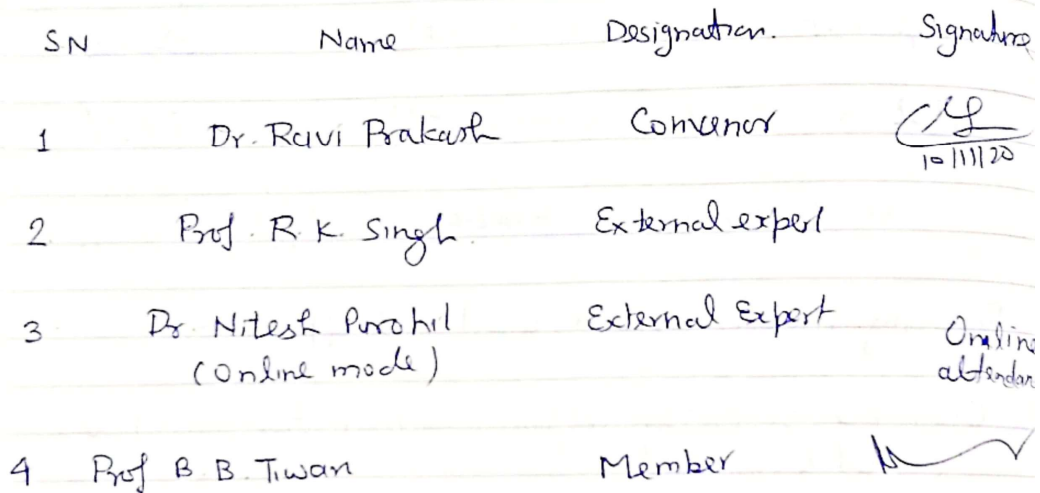 SN Name Designation. Signature
1 Dr. Ravi Prakash Convenor
10/11/20
2 Prof. R. K. Singh. External expert
3 Dr Nitesh Purohit External Expert Online
(Online mode) attendan
4 Prof B. B. Tiwari Member